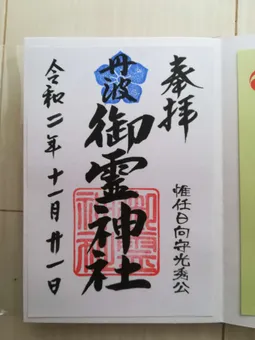 奉拝
惟任日向守光秀公
丹波
御霊神社
令和二年十一月廿一日